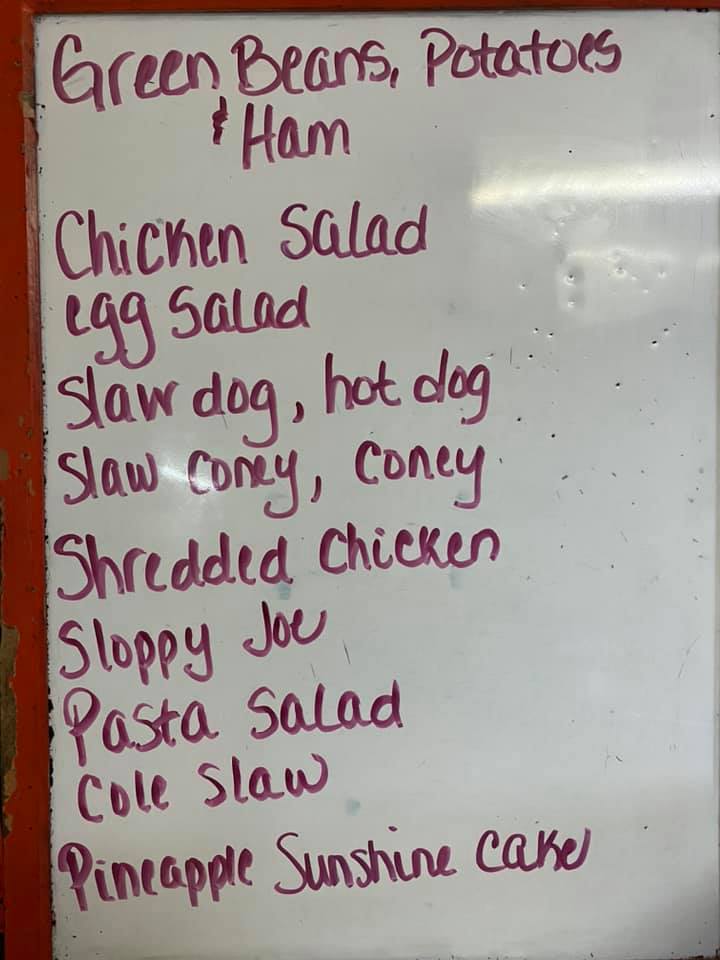 Green Beans, Potatoes
& Ham
Chicken Salad
egg Salad
Slaw dog, hot dog
Slaw Coney, Coney
Shredded Chicken
Sloppy Joe
Pasta Salad
Cole Slaw
Pineapple Sunshine Cake